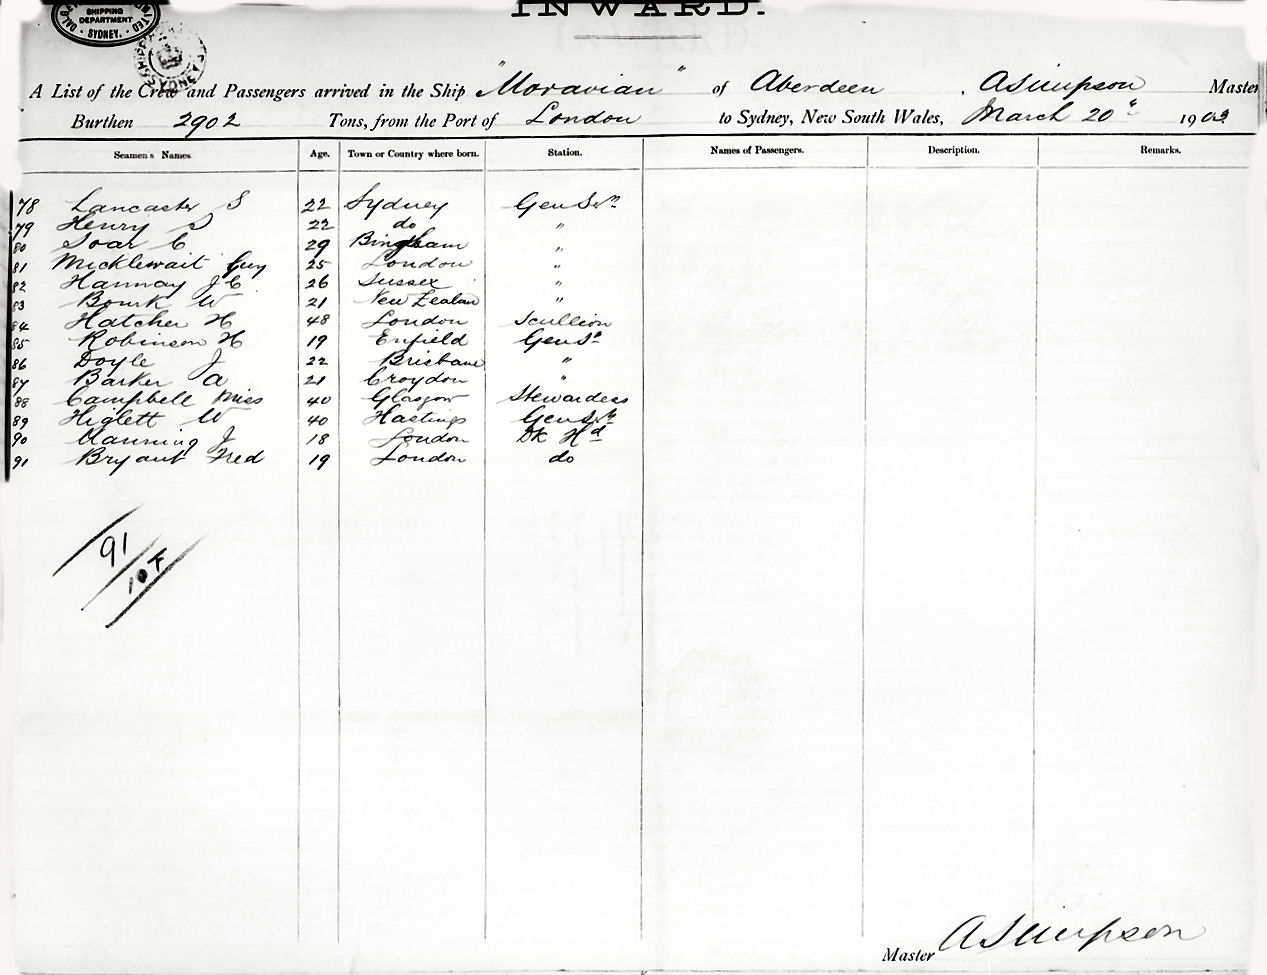 INWARD.
SHIPPING
DEPARTMENT
SYDNEY.
A List of the Crew and Passengers arrived in the Ship "Moravian" of Aberdeen, A Simpson Master
Burthen 2902 Tons, from the Port of London to Sydney, New South Wales, March 20th 1903
Seamen's Names. Age. Town or Country where born. Station. Names of Passengers. Description. Remarks.
78 Lancaster S 22 Sydney Gen Servt
79 Henry S 22 do "
80 Soar C 29 Bingham "
81 Micklewait Guy 25 London "
82 Hannay J C 26 Sussex "
83 Bourk W 21 New Zealan "
84 Hatcher H 48 London Scullion
85 Robinson H 19 Enfield Gen St
86 Doyle J 22 Brisbane "
87 Barker A 21 Croydon "
88 Campbell Miss 40 Glasgow Stewardess
89 Higlett W 40 Hastings Gen Servt
90 Manning J 18 London Dk Hd
91 Bryant Fred 19 London do
91
Master A Simpson